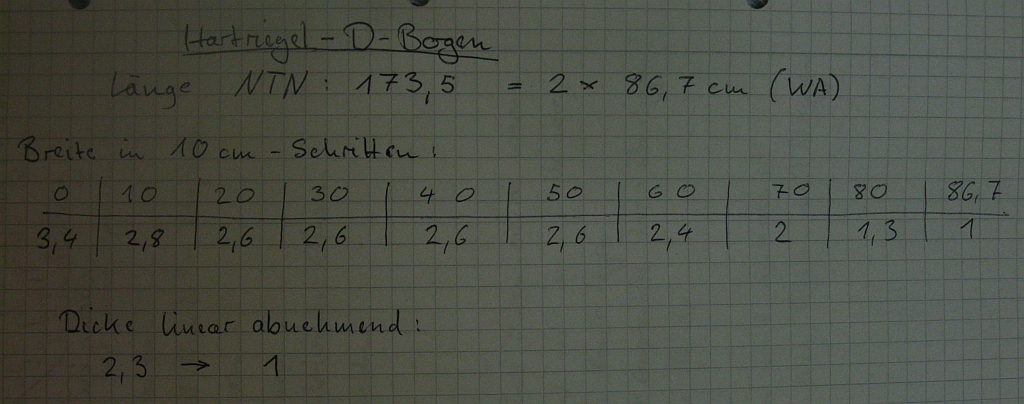 Hartriegel - D - Bogen
Länge NTN : 173,5 = 2 × 86,7 cm (WA)
Breite in 10 cm - Schritten :
0 | 10 | 20 | 30 | 40 | 50 | 60 | 70 | 80 | 86,7
3,4 | 2,8 | 2,6 | 2,6 | 2,6 | 2,6 | 2,4 | 2 | 1,3 | 1
Dicke linear abnehmend :
2,3 → 1